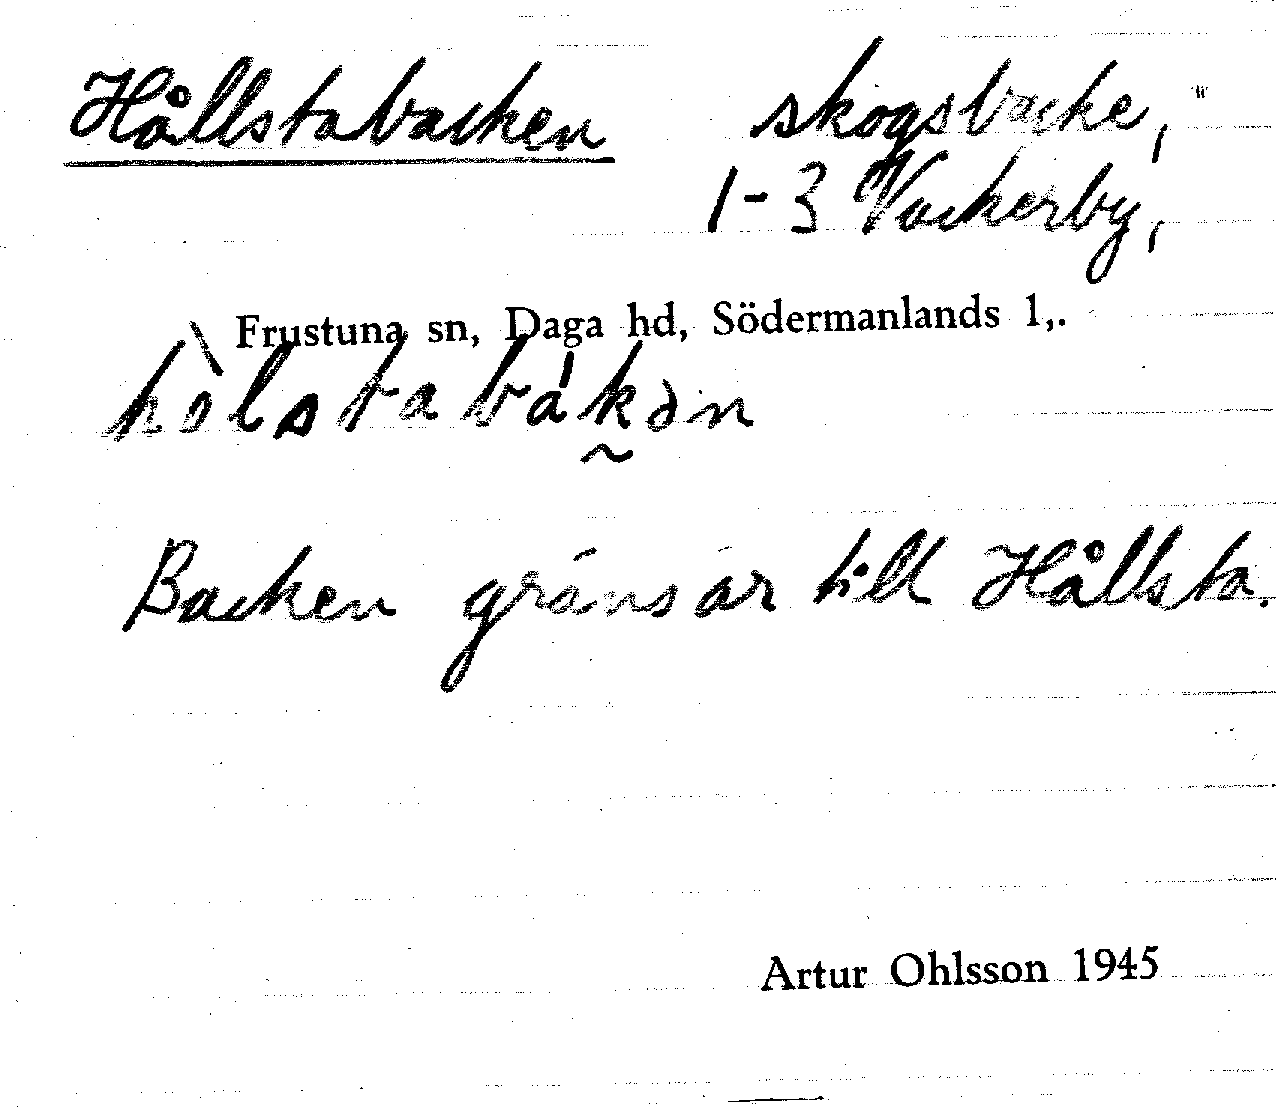 Hållstabacken skogsbacke,
1-3 Vackerby,
Frustuna sn, Daga hd, Södermanlands l,.
hòlstabákən
Backen gränsar till Hållsta.
Artur Ohlsson 1945